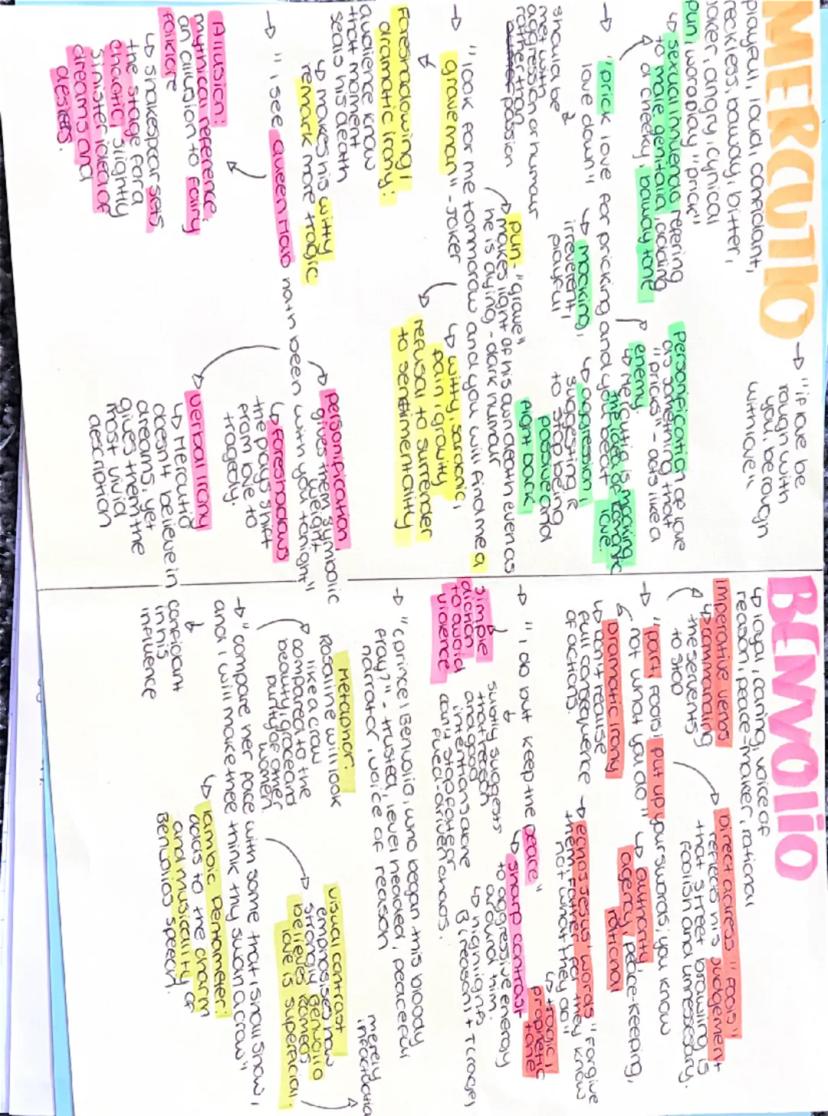 MERCUTIO
playful, loud, confidant,
reckless, baway, bitter,
joker, angry, cynical
pun, wordplay "prick"
↳ sexual innuendo refering
to male genitalia, adding
a cheeky, baway tone
→ "If love be
rough with
you, be rough
with love"
Personification of love
as something that
"pricks" - acts like a
enemy
↳ Mercutio is mocking
the idea of romantic
love.
→ "prick love for pricking and you beat
love down"
should be
met with
aggression or humour
rather than
passion
↳ mocking,
irreverent,
playful
↳ aggression,
suggesting
to be
powerful and
fight back
→ "look for me tommorow and you will find me a
grave man" - JOKER
pun - "grave"
makes light of his own death even as
he is dying - dark humour
↳ witty, sardonic,
pain, gravity
refusal to surrender
to sentimentality
Foreshadowing/
dramatic irony:
audience know
that moment
seals his death
↳ makes his witty
remark more tragic
→ "I see Queen Mab hath been with you tonight"
Allusion:
mythical reference,
an allusion to fairy
folklore
↳ shakespear sets
the stage for a
chaotic, slightly
sinister idea of
dreams and
desires.
personification
gives them symbolic
weight
↳ foreshadows
the plays shift
from love to
tragedy.
verbal irony
↳ Mercutio
doesn't believe in
dreams, yet
gives them the
most vivid
description
BENVOLIO
↳ loyal, caring, voice of
reason, peace-maker, rational
imperative verbs
↳ commanding
the servents
to stop
Direct adress "Fools"
reflects his judgement
that street brawling is
foolish and unnecessary.
→ "part, fools! put up your swords; you know
not what you do"
Dramatic irony
↳ don't realise
full consequence
of actions
↳ authority,
agency, peace-keeping,
rational
→ echos Jesus' words "forgive
them father, for they know
not what they do"
↳ tragic,
prophetic
tone
→ "I do but keep the peace"
simple
diction
to avoid
violence
subtly suggests
that reason
and good
intentions alone
cant stop fate or
feud-driven chaos.
↳ sharp contrast
to aggressive energy
around him
↳ highlights
B (reason) + T (rage)
→ "(prince) Benvolio, who began this bloody
fray?" - trusted, level headed, peaceful
narrator, voice of reason
Metaphor:
Rosaline will look
like a crow
compared to the
beauty, grace and
purity of other
women
visual contrast
emphasises how
strongly Benvolio
believes Romeos
love is superficial.
merely
infactuation
→ "compare her face with some that I shall show,
and I will make thee think thy swan a crow"
confidant
in his
influence
↳ iambic pentameter:
adds to the charm
and musicality of
Benvolios speech.